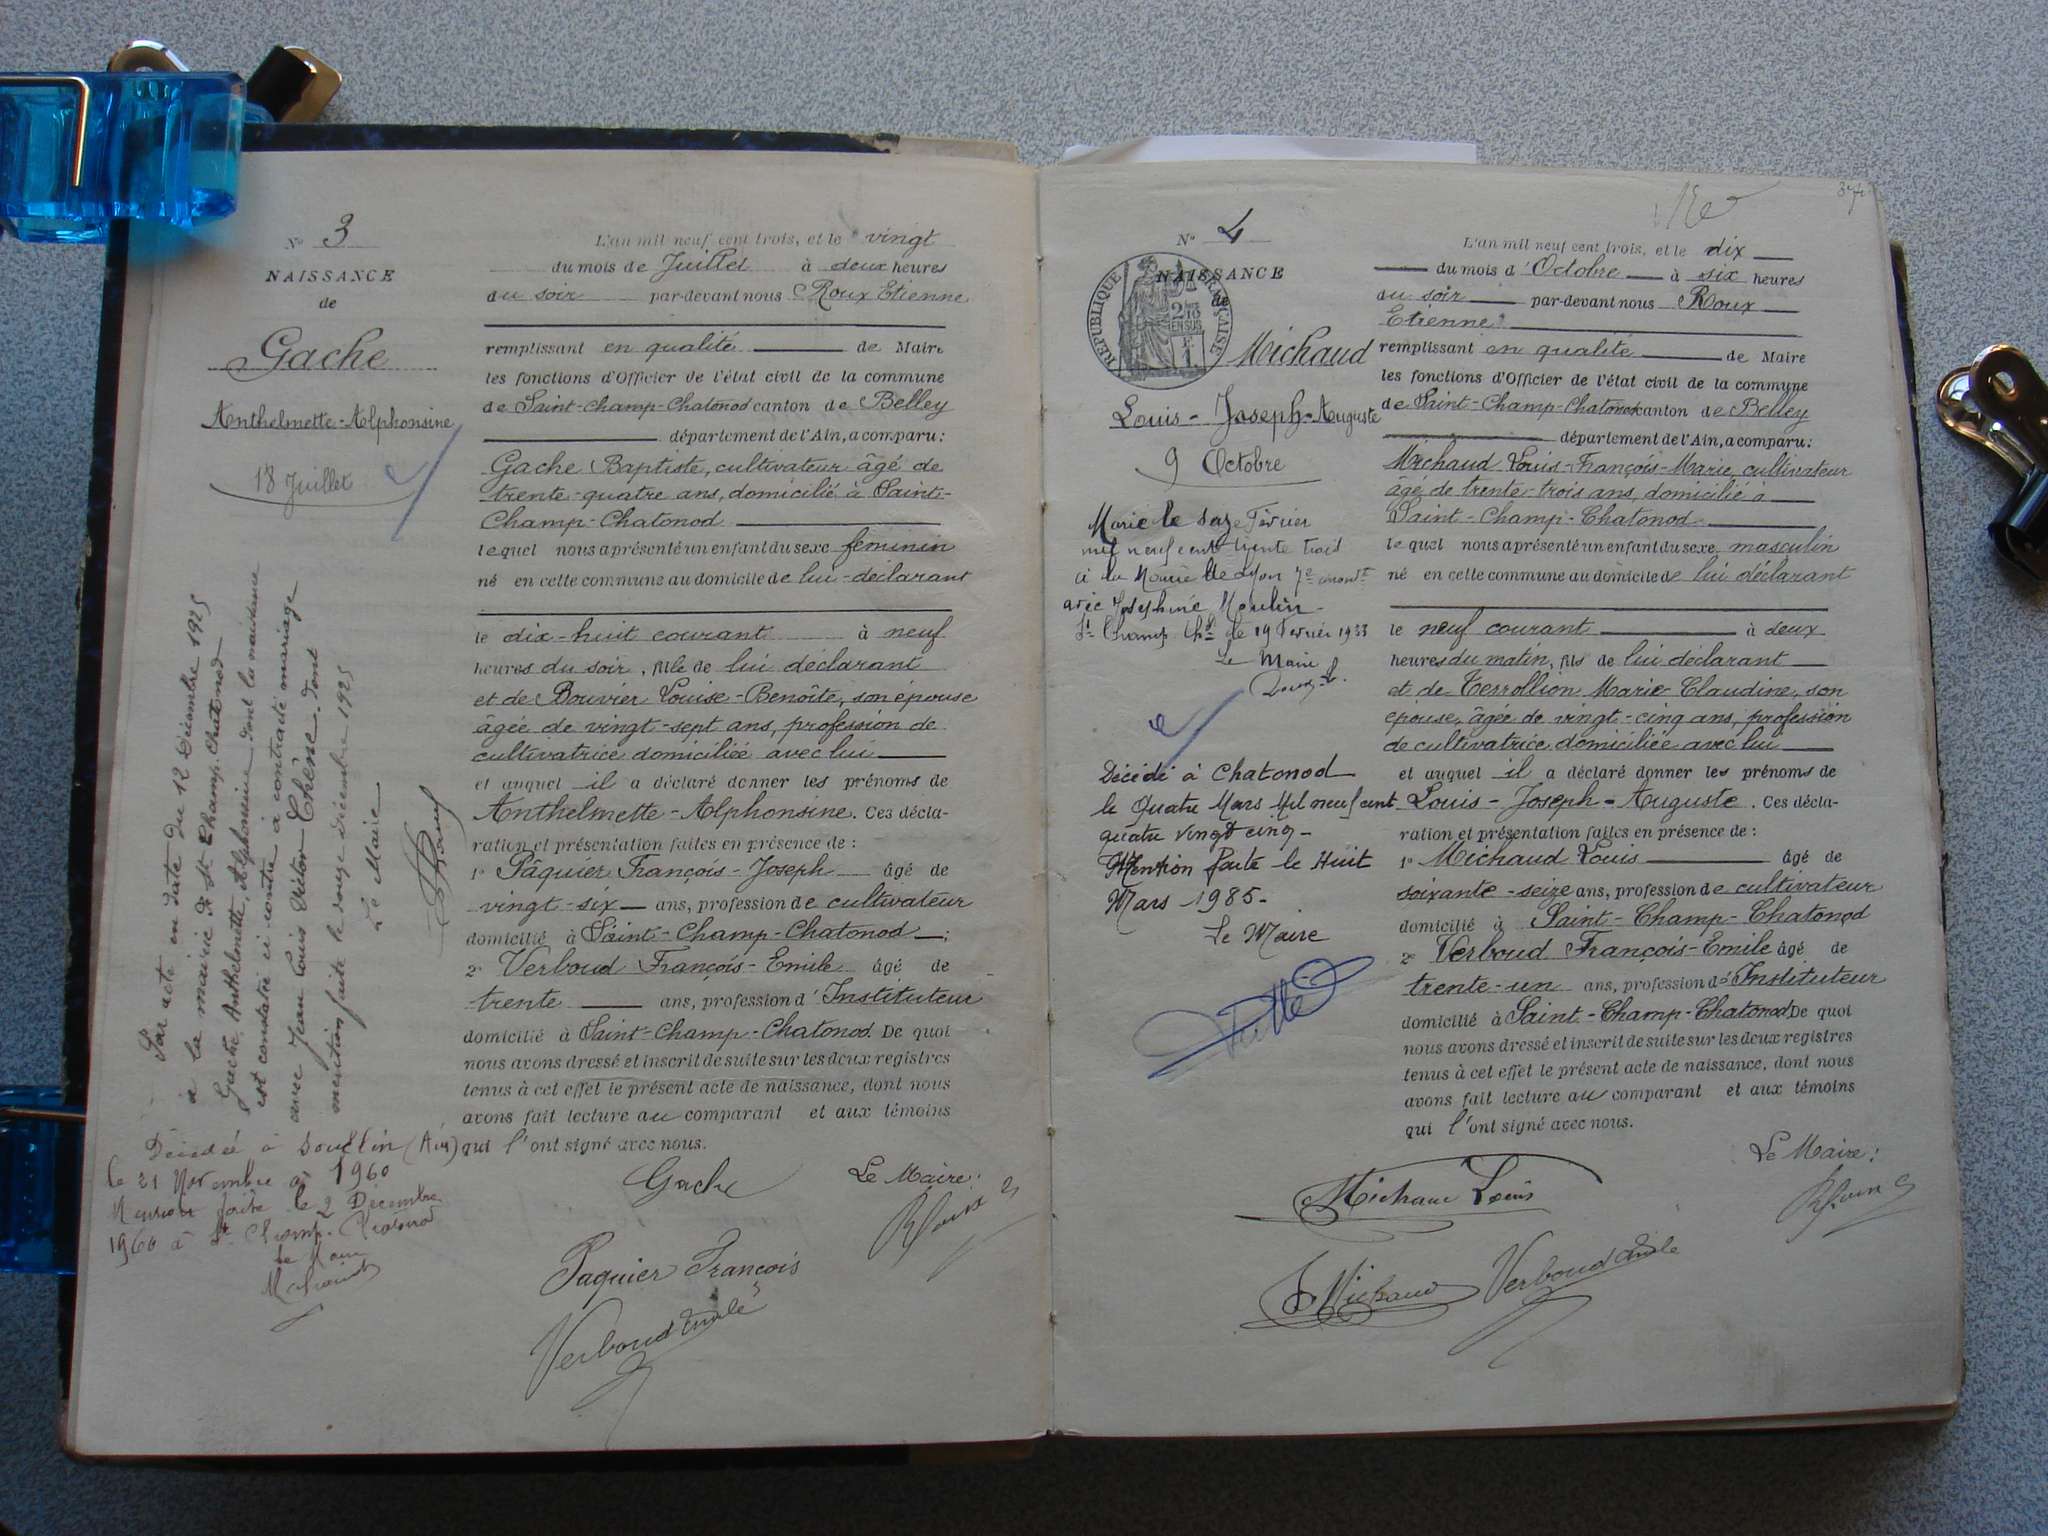 N° 3
NAISSANCE
de
Gache
Anthelmette-Alphonsine
18 Juillet
Par acte en date du 12 Décembre 1925
à la mairie de St Champ-Chatonod
Gache, Anthelmette, Alphonsine, dont la naissance
est constatée ci contre à contracté mariage
avec Jean Louis Victor Chêne dont
mention faite le douze décembre 1925
Le Maire
Décédée à (Ain)
le 21 Novembre 1960
Mention faite le 2 Décembre
1960 à St Champ-Chatonod
Le Maire
L'an mil neuf cent trois, et le vingt
du mois de Juillet à deux heures
du soir par-devant nous Roux Etienne
remplissant en qualité de Maire
les fonctions d'Officier de l'état civil de la commune
de Saint-Champ-Chatonod canton de Belley
département de l'Ain, a comparu :
Gache Baptiste, cultivateur âgé de
trente-quatre ans, domicilié à Saint-
Champ-Chatonod
lequel nous a présenté un enfant du sexe féminin
né en cette commune au domicile de lui-déclarant
le dix-huit courant à neuf
heures du soir, fille de lui déclarant
et de Bouvier Louise-Benoîte, son épouse
âgée de vingt-sept ans, profession de
cultivatrice domiciliée avec lui
et auquel il a déclaré donner les prénoms de
Anthelmette-Alphonsine. Ces décla-
ration et présentation faites en présence de :
1° Pâquier François-Joseph âgé de
vingt-six ans, profession de cultivateur
domicilié à Saint-Champ-Chatonod ;
2° Verboud François-Emile âgé de
trente ans, profession d'Instituteur
domicilié à Saint-Champ-Chatonod. De quoi
nous avons dressé et inscrit de suite sur les deux registres
tenus à cet effet le présent acte de naissance, dont nous
avons fait lecture au comparant et aux témoins
qui l'ont signé avec nous.
Gache Le Maire :
Paquier François
Verboud Emile
374
N° 4
NAISSANCE
de
REPUBLIQUE FRANÇAISE
Michaud
Louis-Joseph-Auguste
9 Octobre
Marié le seize Février
mil neuf cent trente trois
à la Mairie de Lyon 7e arrondt
avec Joséphine Moulin
St Champ Chd le 19 Février 1933
Le Maire
Décédé à Chatonod
le Quatre Mars Mil neuf cent
quatre vingt cinq -
Mention faite le Huit
Mars 1985 -
Le Maire
L'an mil neuf cent trois, et le dix
du mois d'Octobre à six heures
du soir par-devant nous Roux
Etienne
remplissant en qualité de Maire
les fonctions d'Officier de l'état civil de la commune
de Saint-Champ-Chatonod canton de Belley
département de l'Ain, a comparu :
Michaud Louis-François-Marie, cultivateur
âgé de trente-trois ans, domicilié à
Saint-Champ-Chatonod
lequel nous a présenté un enfant du sexe masculin
né en cette commune au domicile de lui déclarant
le neuf courant à deux
heures du matin, fils de lui déclarant
et de Terrollion Marie-Claudine, son
épouse, âgée de vingt-cinq ans, profession
de cultivatrice domiciliée avec lui
et auquel il a déclaré donner les prénoms de
Louis-Joseph-Auguste. Ces décla-
ration et présentation faites en présence de :
1° Michaud Louis âgé de
soixante-seize ans, profession de cultivateur
domicilié à Saint-Champ-Chatonod
2° Verboud François-Emile âgé de
trente-un ans, profession d'Instituteur
domicilié à Saint-Champ-Chatonod. De quoi
nous avons dressé et inscrit de suite sur les deux registres
tenus à cet effet le présent acte de naissance, dont nous
avons fait lecture au comparant et aux témoins
qui l'ont signé avec nous.
Le Maire :
Michaud Louis
Michaud Verboud Emile